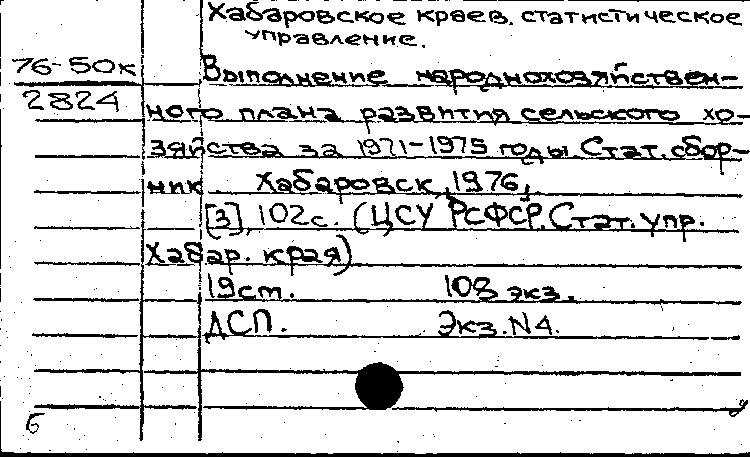 Хабаровское краев. статистическое
управление.
76-50к
Выполнение народнохозяйствен-
2824
ного плана развития сельского хо-
зяйства за 1971-1975 годы. Стат. сбор-
ник. Хабаровск, 1976,
[3], 102с. (ЦСУ РСФСР. Стат. упр.
Хабар. края)
19см. 108 экз.
ДСП. Экз. N4.
б у